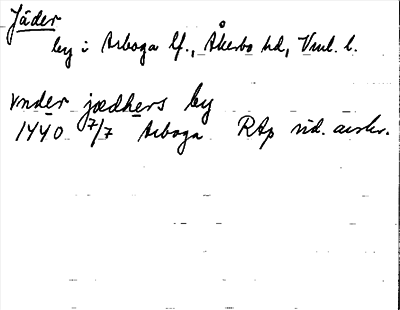 Jäder
by i Arboga lf., Åkerbo hd, Vml. l.
vnder jædhers by
1440 7/7 Arboga RAp vid. avskr.